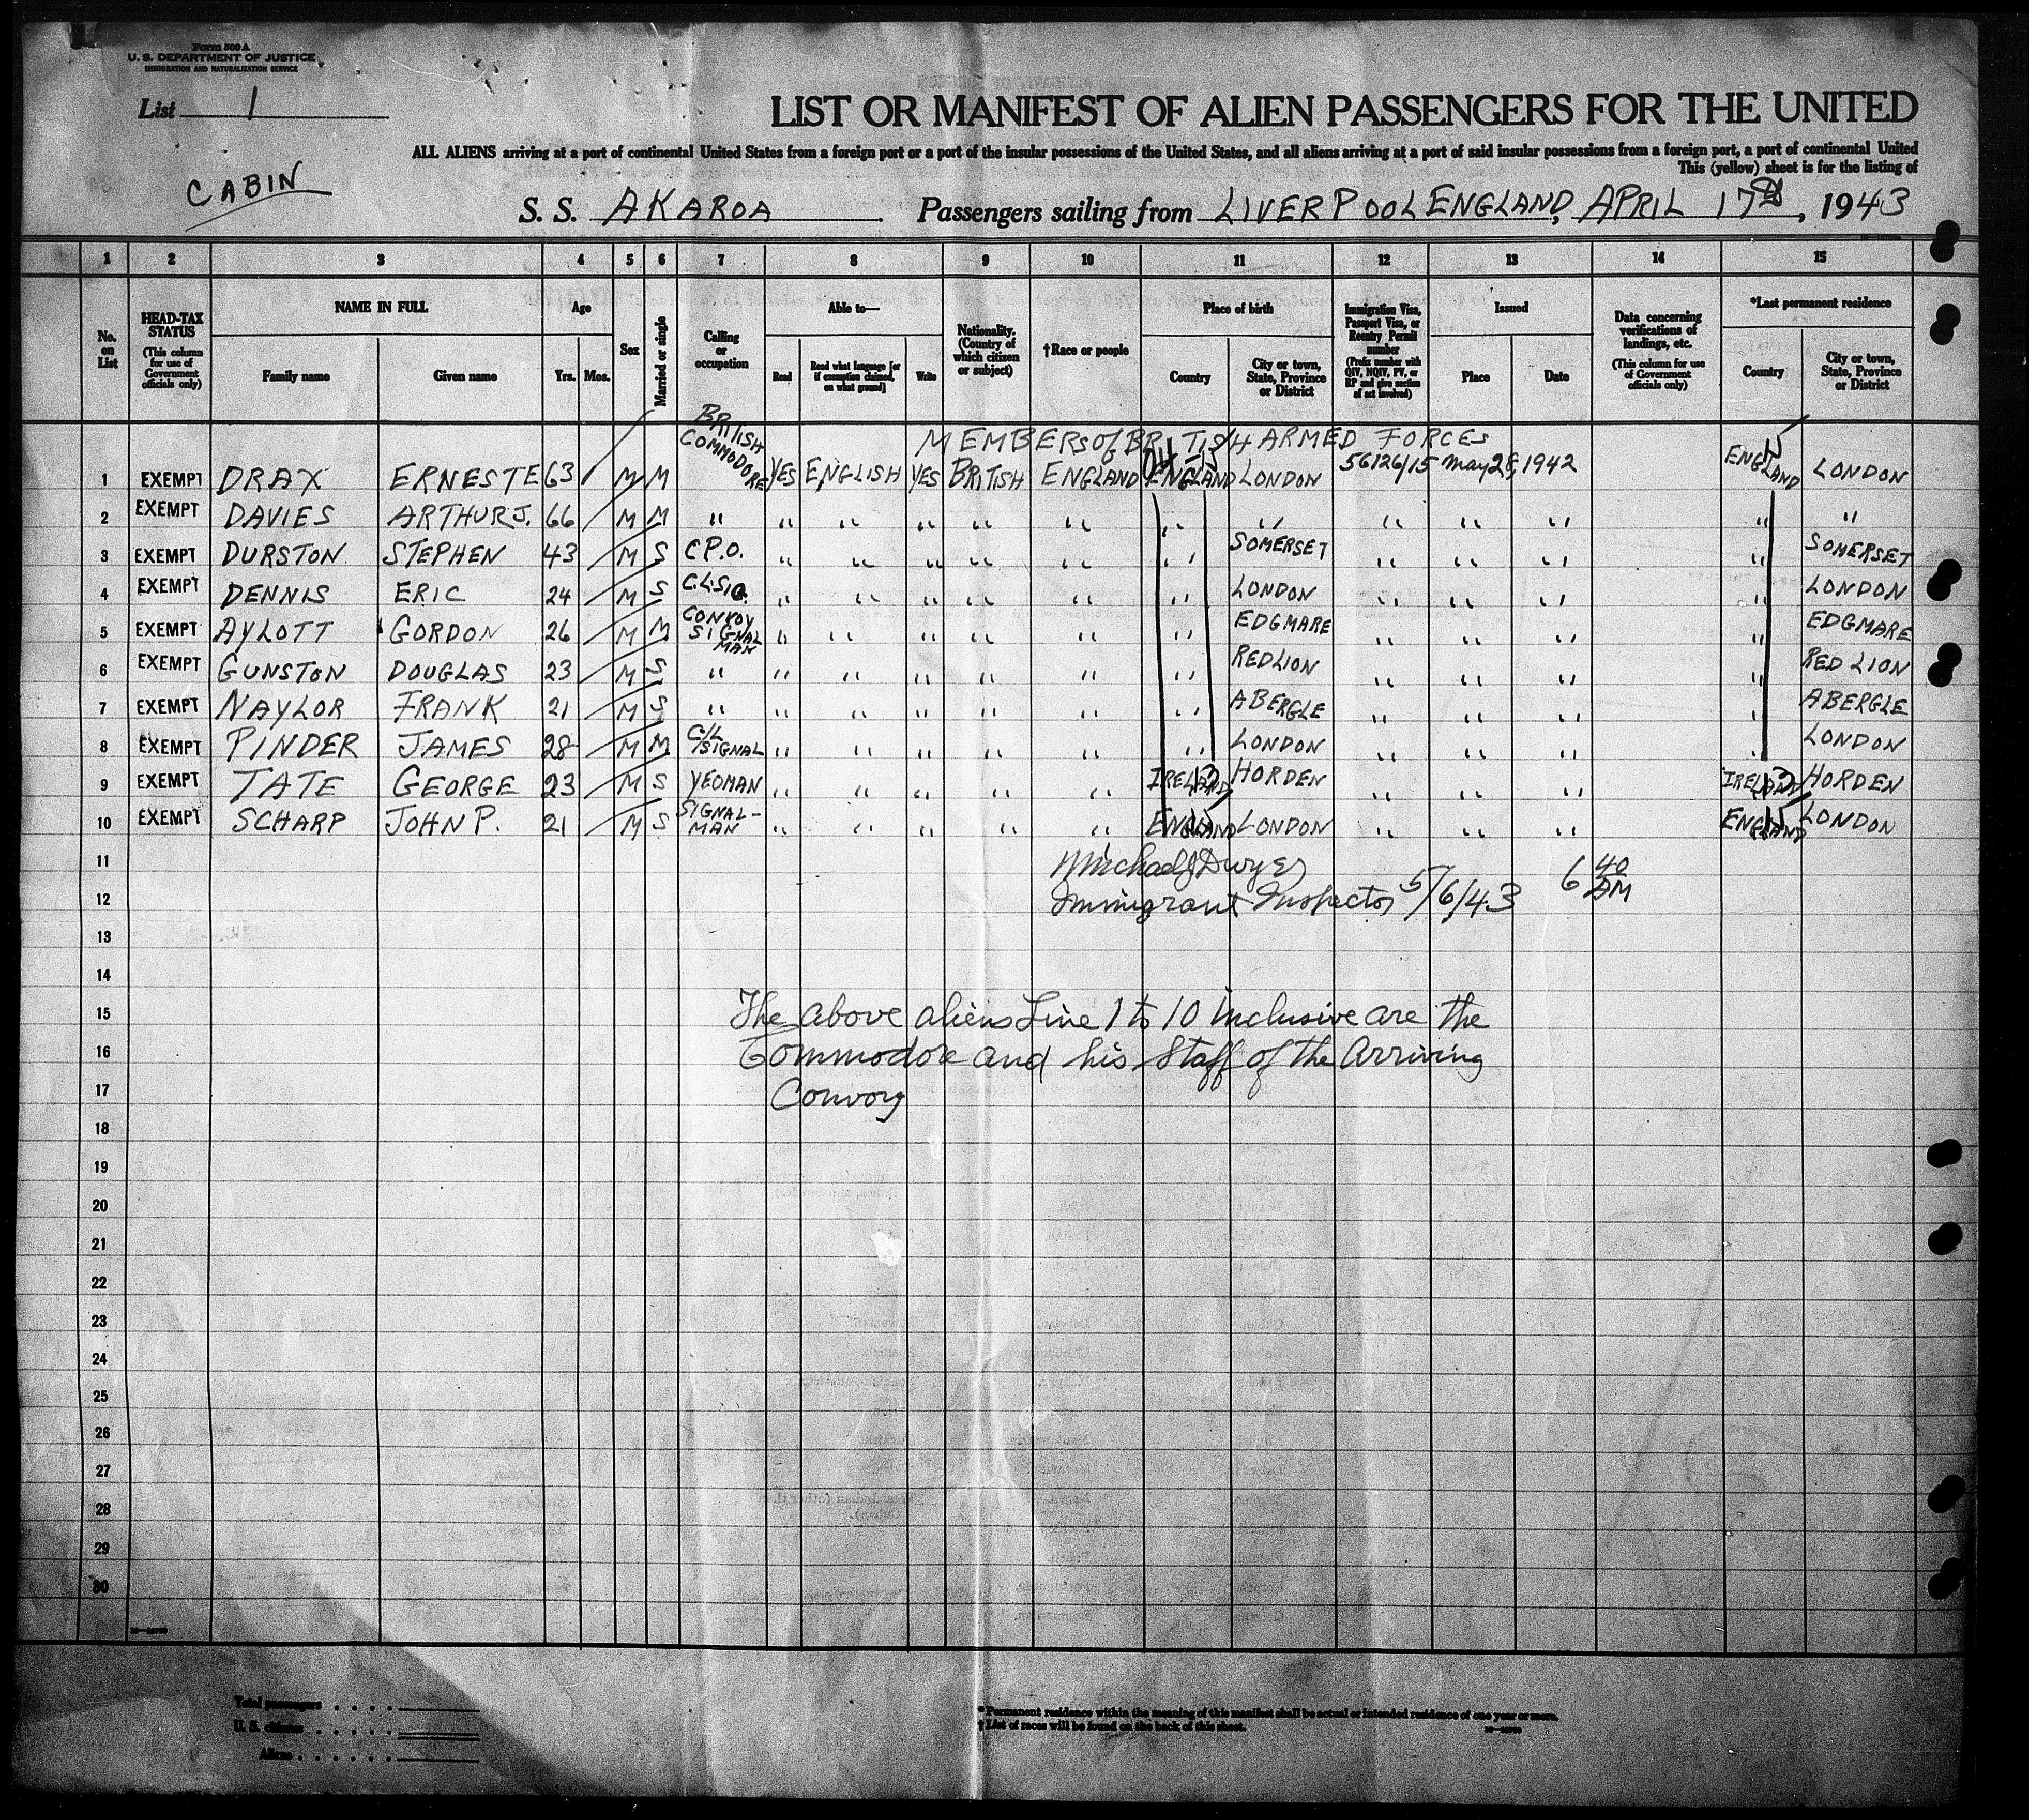 Form 500 A
U. S. DEPARTMENT OF JUSTICE
IMMIGRATION AND NATURALIZATION SERVICE
List 1
LIST OR MANIFEST OF ALIEN PASSENGERS FOR THE UNITED
ALL ALIENS arriving at a port of continental United States from a foreign port or a port of the insular possessions of the United States, and all aliens arriving at a port of said insular possessions from a foreign port, a port of continental United
This (yellow) sheet is for the listing of
CABIN
S. S. AKAROA Passengers sailing from LIVERPOOL ENGLAND, APRIL 17th, 1943
1 2 3 4 5 6 7 8 9 10 11 12 13 14 15
No. on List
HEAD-TAX STATUS (This column for use of Government officials only)
NAME IN FULL
Family name Given name
Age
Yrs. Mos.
Sex
Married or single
Calling or occupation
Able to—
Read
Read what language [or if exemption claimed, on what ground]
Write
Nationality. (Country of which citizen or subject)
†Race or people
Place of birth
Country
City or town, State, Province or District
Immigration Visa, Passport Visa, or Reentry Permit number (Prefix number with QIV, NQIV, PV, or RP and give section of act involved)
Issued
Place Date
Data concerning verifications of landings, etc. (This column for use of Government officials only)
*Last permanent residence
Country
City or town, State, Province or District
MEMBERS OF BRITISH ARMED FORCES
1 EXEMPT DRAX ERNESTE 63 M M BRITISH COMMODORE YES ENGLISH YES BRITISH ENGLAND ENGLAND LONDON 56126/15 May 28, 1942 ENGLAND LONDON
2 EXEMPT DAVIES ARTHUR J. 66 M M " " " " " " " " " " " " "
3 EXEMPT DURSTON STEPHEN 43 M S C.P.O. " " " " " " SOMERSET " " " " SOMERSET
4 EXEMPT DENNIS ERIC 24 M S C.L.SIG. " " " " " " LONDON " " " " LONDON
5 EXEMPT AYLOTT GORDON 26 M M CONVOY SIGNAL MAN " " " " " " EDGMARE " " " " EDGMARE
6 EXEMPT GUNSTON DOUGLAS 23 M S " " " " " " " REDLION " " " " RED LION
7 EXEMPT NAYLOR FRANK 21 M S " " " " " " " ABERGLE " " " " ABERGLE
8 EXEMPT PINDER JAMES 28 M M C/L SIGNAL " " " " " " LONDON " " " " LONDON
9 EXEMPT TATE GEORGE 23 M S YEOMAN " " " " " IRELAND HORDEN " " " IRELAND HORDEN
10 EXEMPT SCHARP JOHN P. 21 M S SIGNAL-MAN " " " " " ENGLAND LONDON " " " ENGLAND LONDON
11 Michael J Dwyer 6 40 AM
12 Immigrant Inspector 5/6/43
13
14
15 The above aliens Line 1 to 10 inclusive are the
16 Commodore and his Staff of the Arriving
17 Convoy
18
19
20
21
22
23
24
25
26
27
28
29
30
Total passengers
U. S. citizens
Aliens
*Permanent residence within the meaning of this manifest shall be actual or intended residence of one year or more.
†List of races will be found on the back of this sheet.